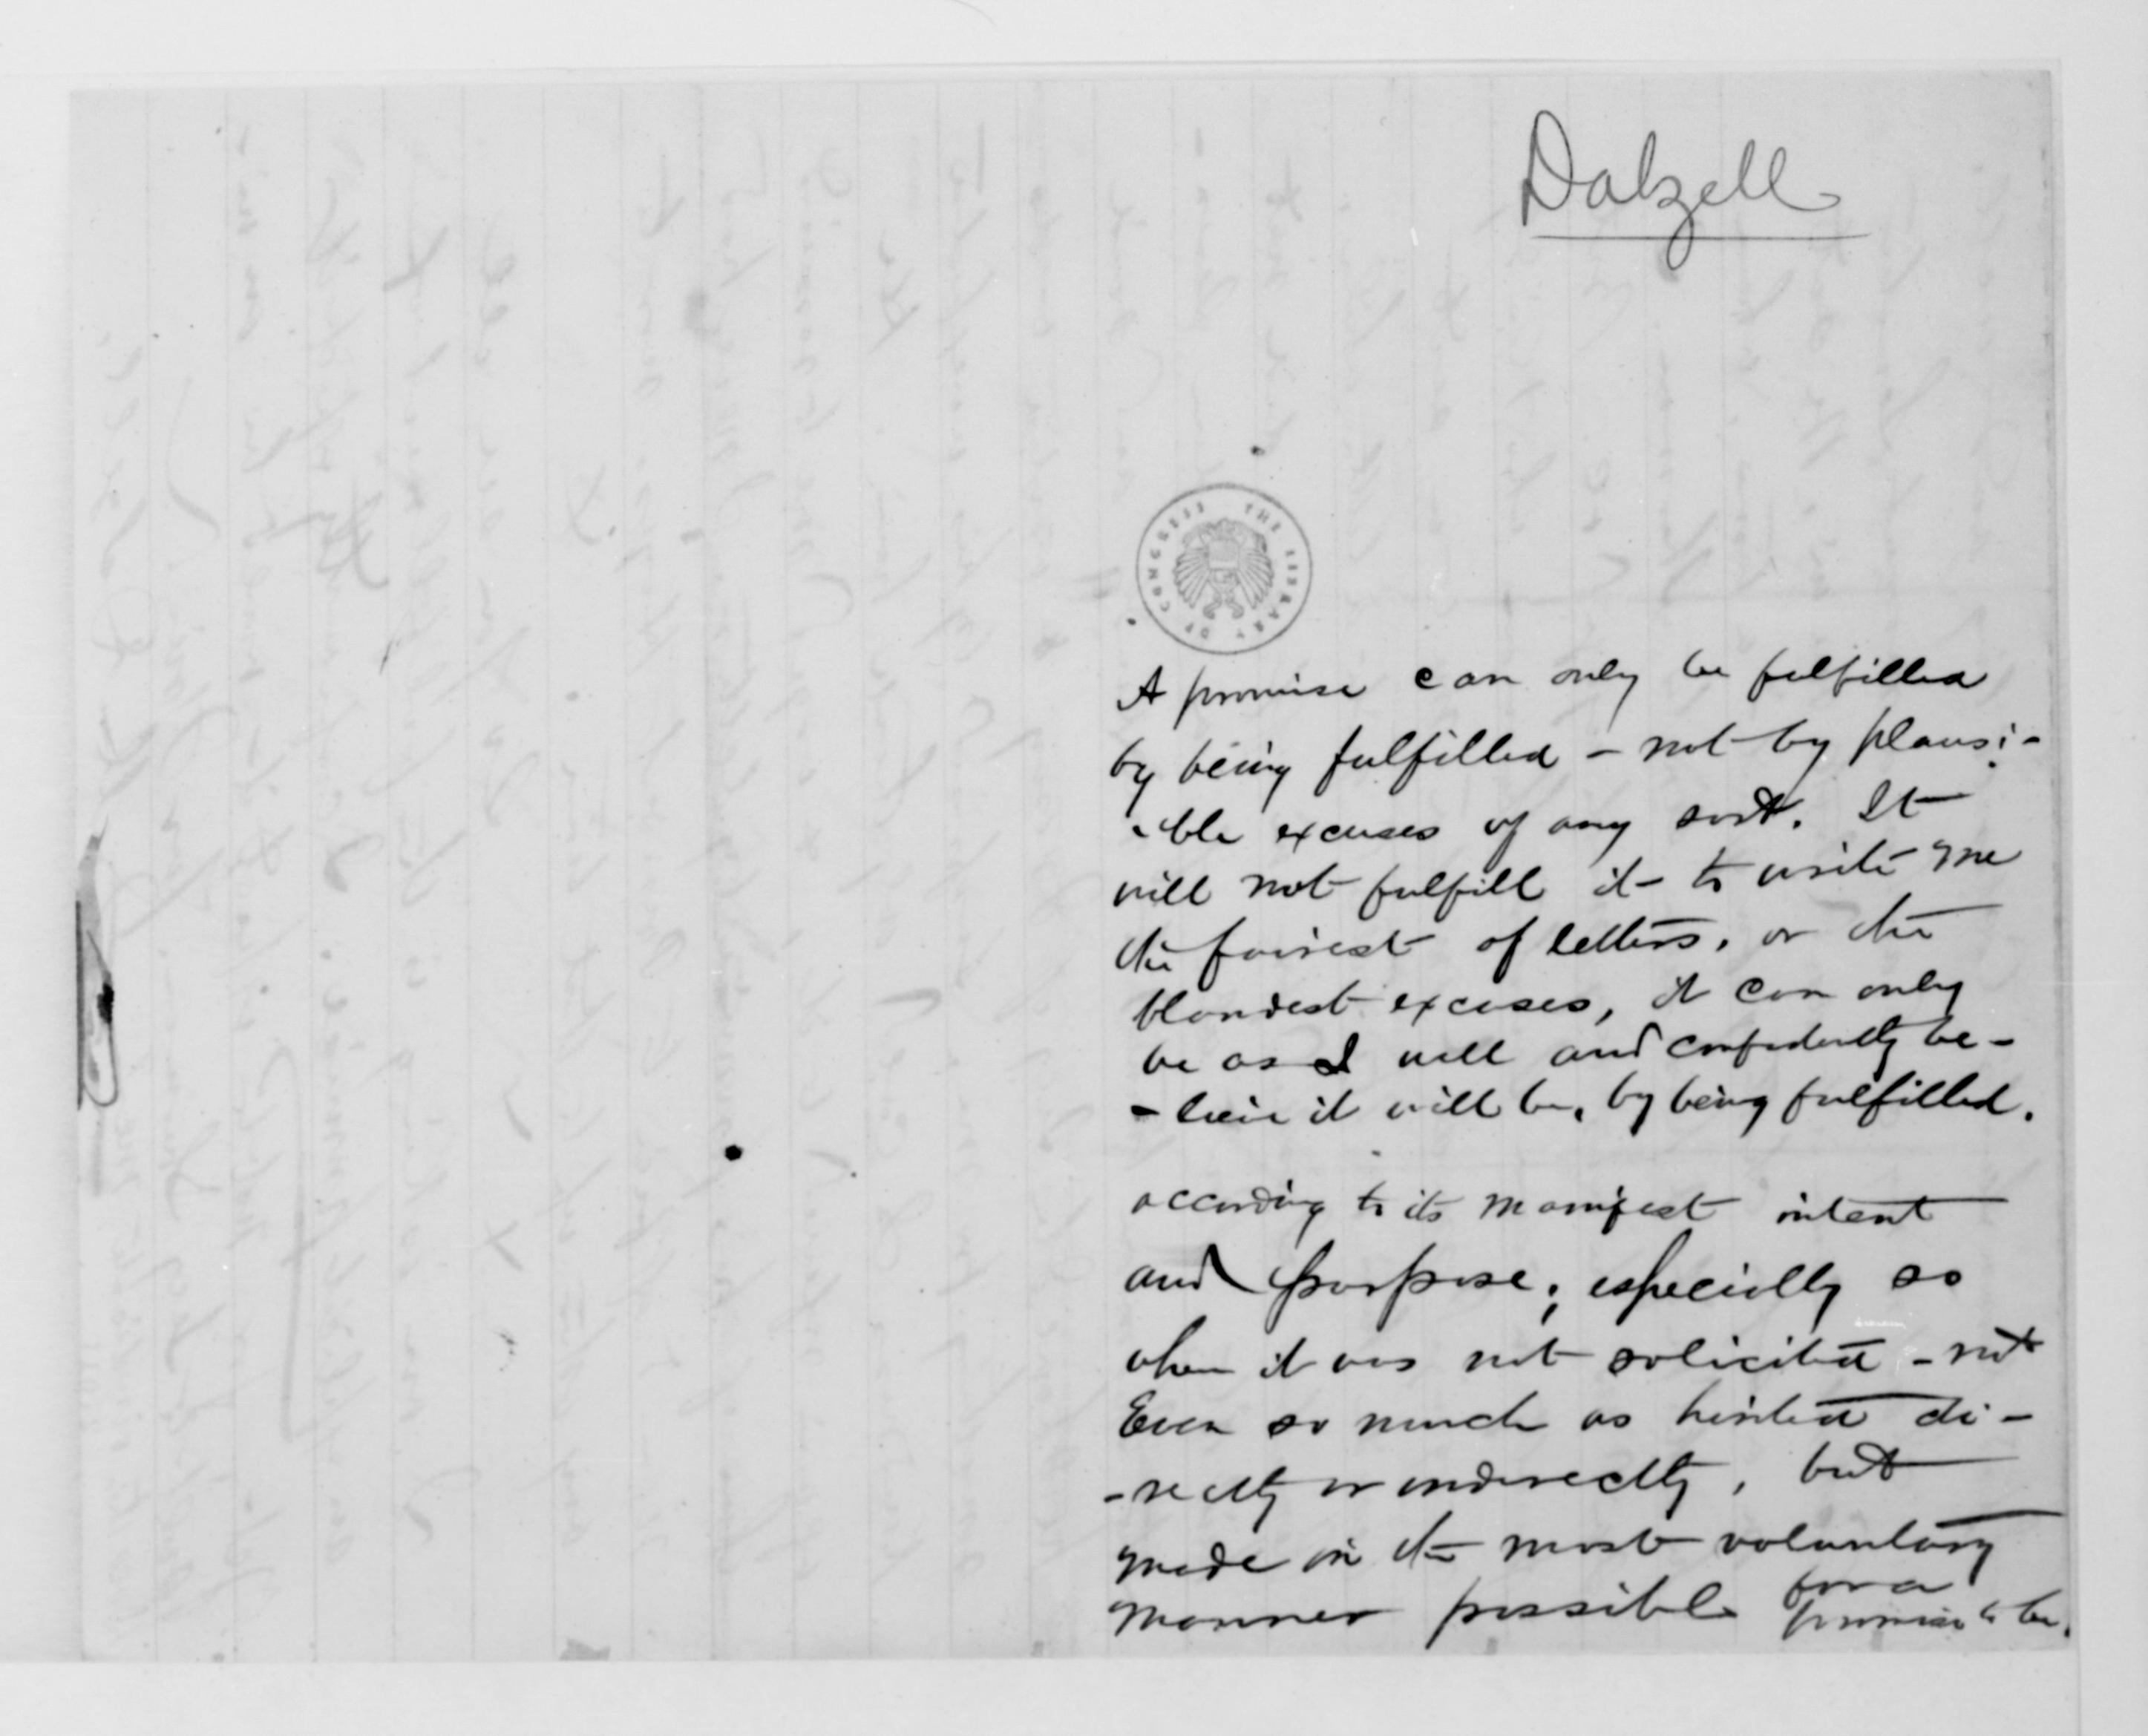 Dalzell
THE LIBRARY OF CONGRESS
A promise can only be fulfilled
by being fulfilled – not by plausi-
-ble excuses of any sort. It
will not fulfill it to write me
the fairest of letters, or the
blandest excuses, it can only
be as I will and confidently be-
-lieve it will be, by being fulfilled.
according to its manifest intent
and purpose; especially so
when it was not solicited – not
Even so much as hinted di-
-rectly or indirectly, but
made in the most voluntary
manner possible for a
promise to be.